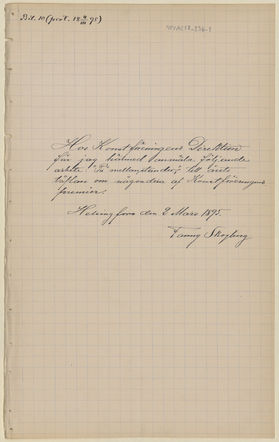 Bil. 10 (prot. 18 4/III 95)
Hos Konstföreningens Direktion
får jag härmed anmäla följande
arbete "På mellanstunder", till årets
täflan om någondera af Konstföreningens
premier.
Helsingfors den 2 Mars 1895.
Fanny Skogberg